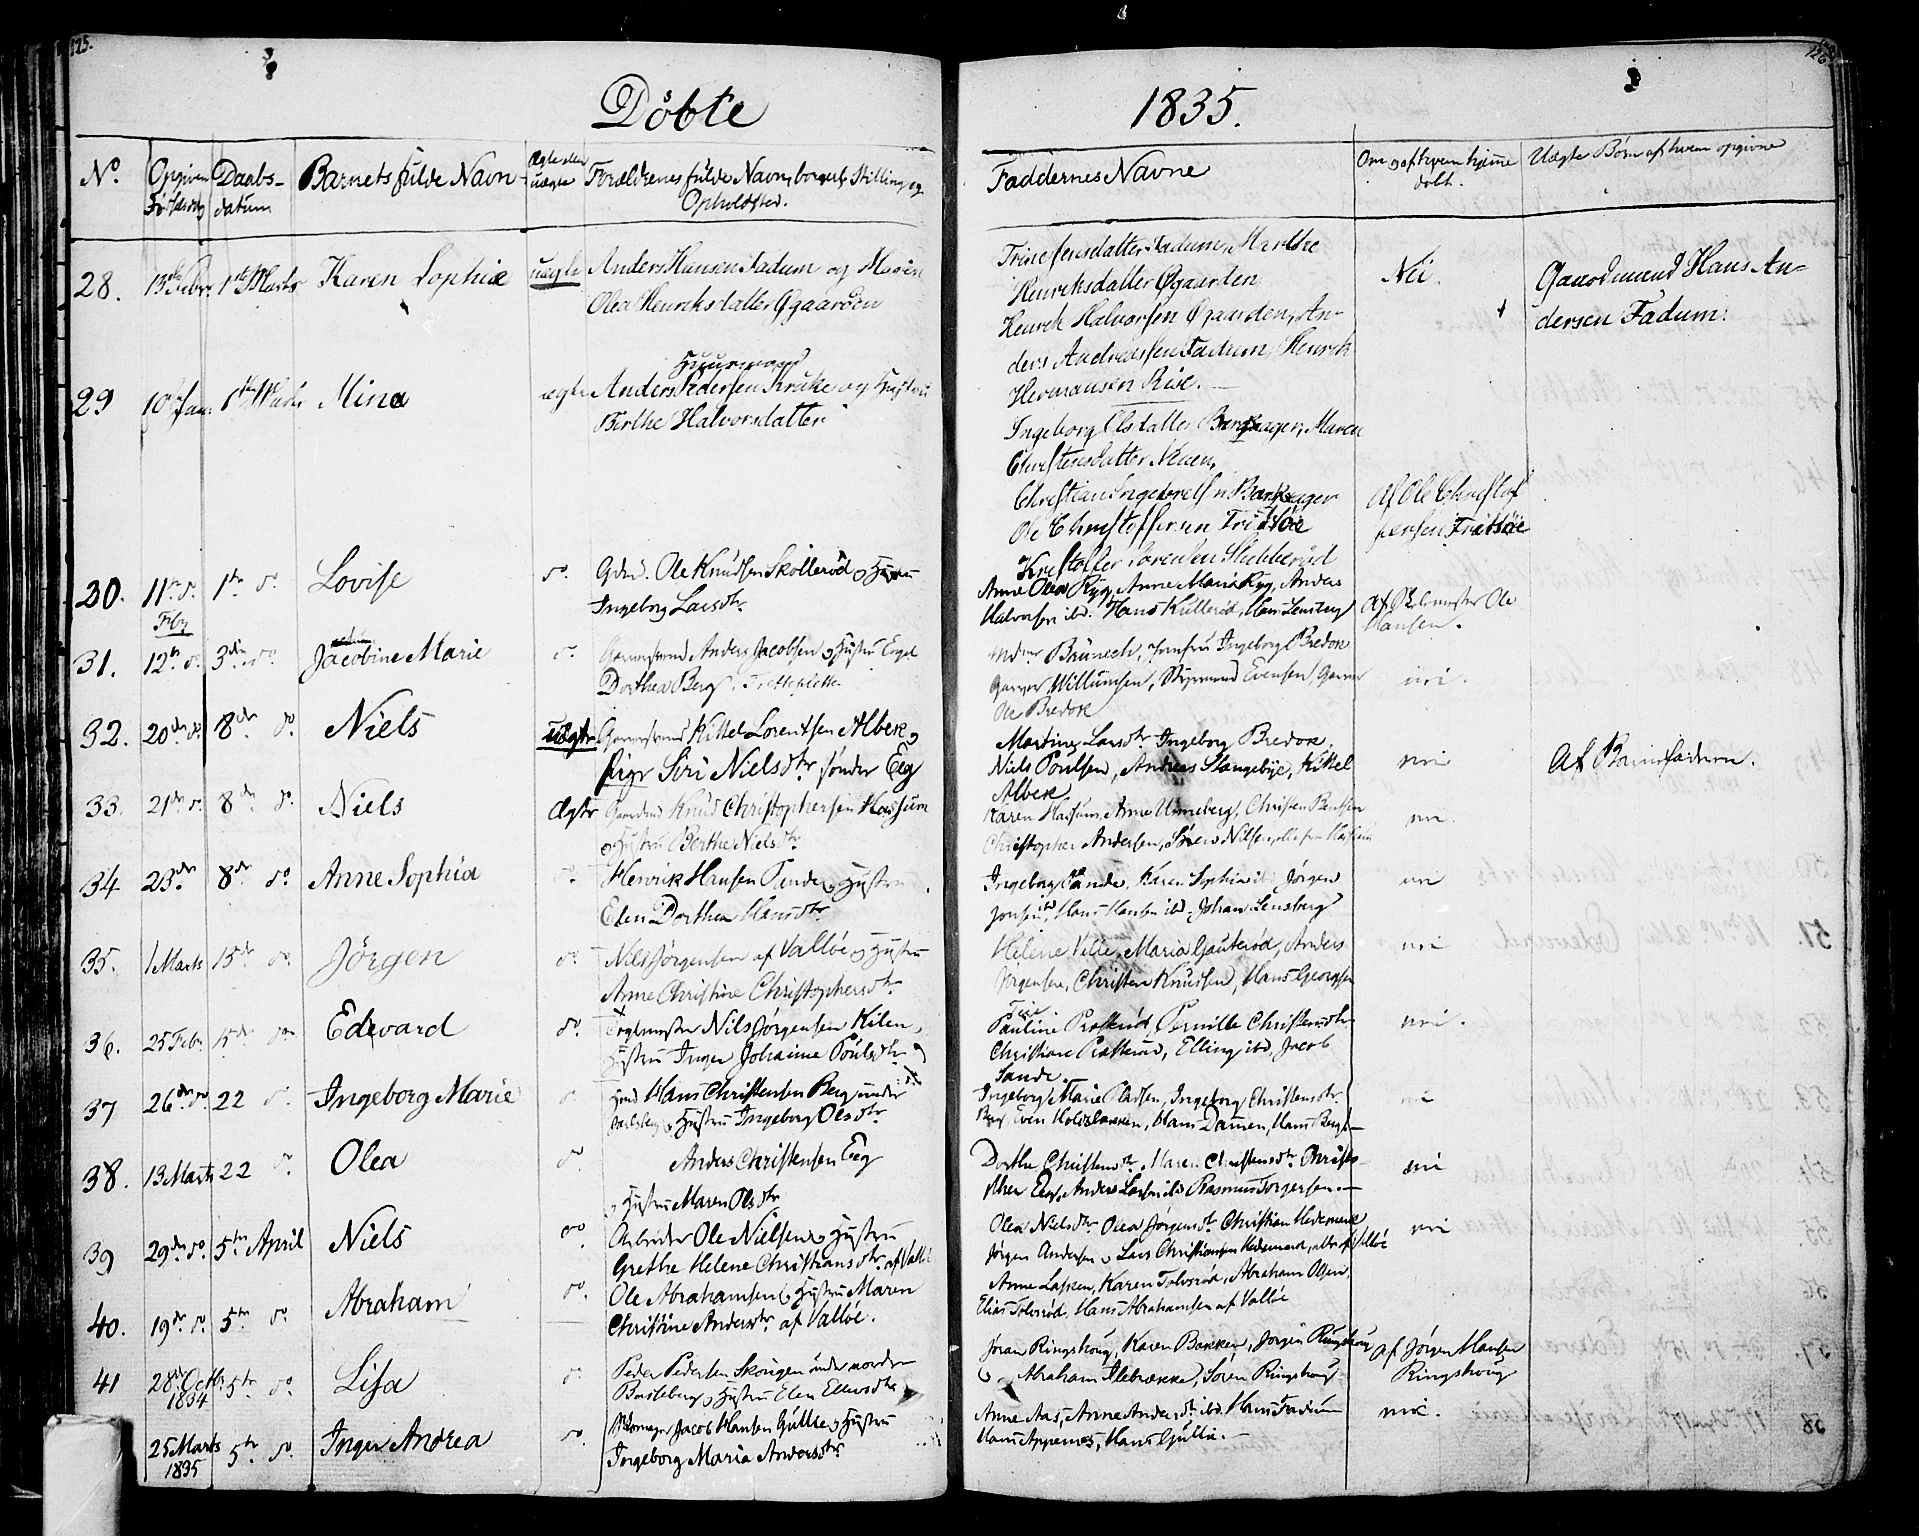 125.
126
Döbte 1835.
No. Opgiven Födselsdag Daabs-datum Barnets fulde Navn Ægte eller uægte Forældrenes fulde Navn, borgerl. Stilling og Opholdsted.
Faddernes Navne Om og af hvem hjemme döbt. Uægte Börn af hvem opgivne
28. 13de Febr. 1ste Marts Karen Sophie uægte Anders Hansen Fadum og Maren
Olea Henriksdatter Øgaarden
Trine Jensdatter Fadum, Marthe
Henriksdatter Øgaarden
Henrik Halvorsen Øgaarden, An-
ders Andreassen Fadum, Henrik
Hermansen Rise.
Nei.
Gaardmand Hans An-
dersen Fadum.
29 10 Jan. 1ste Marts Mina ægte
Huusmand
Anders Pedersen Kruke og Hustru
Birthe Halvorsdatter
Ingeborg Olsdatter Barkager, Maren
Christensdatter
Christian Ingebretsen Barkager
Ole Christoffersen Fritsöe
Kristoffer Sörensen Stubberöd
Af Ole Christof
fersen Fritsöe
30. 11te do. 1te do Lovise do. Gdmd. Ole Knudsen Skolleröd og Hustru
Ingeborg Larsdtr.
Anne Olea Ryg, Anne Maria Ryg, Anders
Halvorsen ibd. Hans Kulleröd, Hans Lensberg
Af Skolemester Ole
Hansen.
Feby
31. 12te do. 3die do Jacobine Marie do. Anders Jacobsen og Hustru Engel
Dorthea Berg.
Brünech, Jomfru Ingeborg Bredok
Garver Willumsen, Sigmund Evensen, Garver
Ole Bredok
nei.
32. 20de do. 8de do Niels uægte Kittel Lorentsen Albek og
Pige Siri Nielsdtr sönder Eeg
Martine Larsdtr. Ingeborg Bredok,
Niels Poulsen, Andreas Slangebye, Kittel
Albek
nei
Af Barnefaderen.
33. 21de do. 8de do. Niels Ægte Gaardmd Knud Christophersen Hassum
og Hustru Berthe Nielsdtr.
Karen Hassum, Anne Unneberg, Christen Bentsen
Christopher Andersen, Sören Nilsen, alle fra Hassum
nei.
34 23de 8de do. Anne Sophia do. Henrik Hansen Sande og Hustru
Elen Dorthea Hansdtr.
Ingeborg Sande, Karen Sophia ibd. Jörgen
Jonsen ibd, Hans Hansen ibd. Johan Lensberg
nei
35. 1 Marts 15de do. Jörgen do. Nils Jörgensen af Vallöe og Hustru
Anne Christine Christophersdtr.
Helene Vilie, Maria Gauteröd, Anders
Jörgensen, Christen Knudsen, Hans Georgsen
nei
36. 25 Febr. 15de do. Edevard do. Teglmester Nils Jörgensen Kilen,
Hustru Inger Johanne Poulsdtr.
Pauline Prasteröd, Pernille Christensdtr.
Christian Prasteröd, Elling ibd, Jacob
Sande.
nei.
37 26de do 22 do Ingeborg Marie do. Hans Christensen Berg under
Jarlsberg og Hustru Ingeborg Olsdtr.
Ingeborg Marie Larsen, Ingeborg Christensdtr.
Berg, Even Hans Damen, Hans Berg.
nei
38. 13 Marts 22 do. Olea do Anders Christensen Eeg
og Hustru Maren Olsdtr
Dorthe Christensdtr. Maren Christensdtr. Christo-
pher Eeg, Anders Larsen ibd. Rasmus Torgersen.
nei
39 29de do. 5te April Niels do. Arbeider Ole Nielsen og Hustru
Grethe Helene Christiansdtr. af Vallöe
Olea Nielsdtr. Olea Jörgensdtr. Christian Hedemark
Jörgen Andersen, Lars Christiansen Hedemark, alle af Vallöe
nei
40. 19de do. 5te do. Abraham do. Ole Abrahamsen og Hustru Maren
Christine Andersdtr. af Vallöe.
Anne Larsen, Karen Tolvsröd, Abraham Olsen,
Elias Tolvsröd, Hans Abrahamsen af Vallöe
41 28de Octbr. 1834 5te do Lisa do. Peder Pedersen Skougen under nordre
Basleberg og Hustru Elen Ellevsdtr
Jöran Ringshoug, Karen Bakken, Jörgen Ringshoug
Abraham Ilebrække, Sören Ringshoug
af Jörgen Hansen
Ringshoug
25 Marts 1835 5te do. Inger Andrea do. Skomager Jacob Hansen Gullie og Hustru
Ingeborg Maria Andersdtr.
Anne Aas, Anne Andersdtr. ibd. Hans Fadum
Hans Appenes, Hans Gullie.
nei.